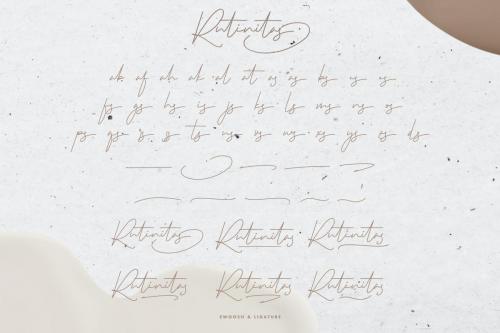 Rutinitas
ak af ah ak al at as as bs
fs gs hs is js ks ls ms ns os
ps qs ts us vs ws xs ys zs ds
Rutinitas Rutinitas Rutinitas
Rutinitas Rutinitas Rutinitas
SWOOSH & LIGATURE